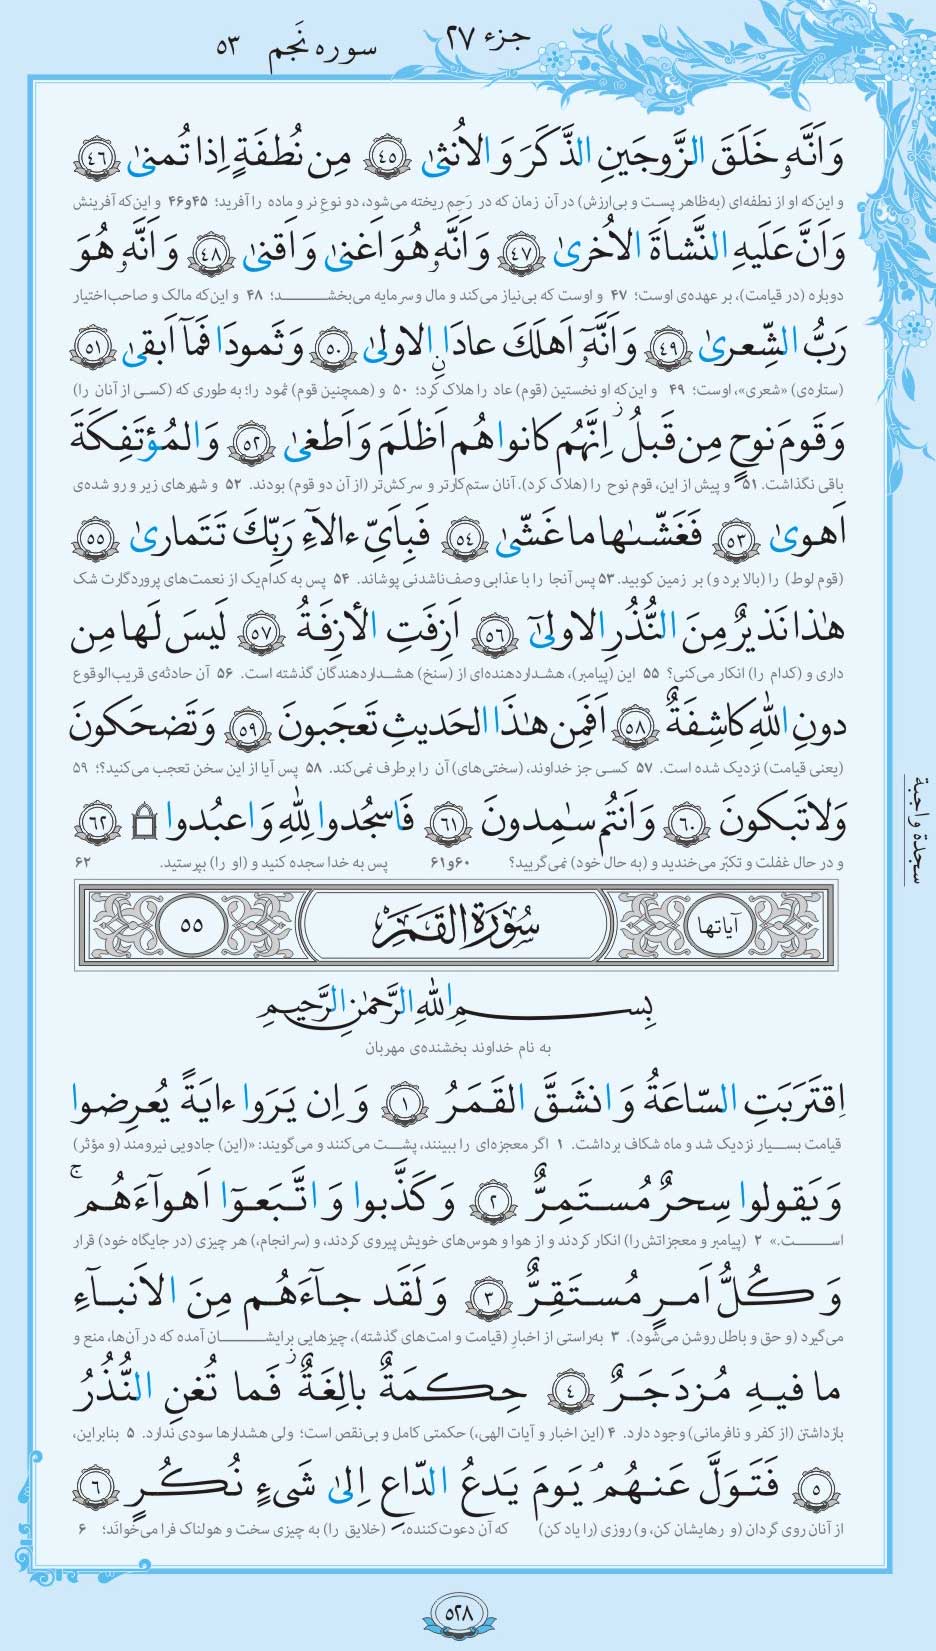 جزء ۲۷
سوره نَجم ۵۳
وَ اَنَّهٗ خَلَقَ الزَّوجَینِ الذَّکَرَ وَ الاُنثیٰ ﴿۴۵﴾ مِن نُطفَةٍ اِذا تُمنیٰ ﴿۴۶﴾
و این‌که او از نطفه‌ای (به‌ظاهر پست و بی‌ارزش) در آن زمان که در رَحِم ریخته می‌شود، دو نوعِ نر و ماده را آفرید؛ ۴۵و۴۶ و این‌که آفرینش
وَ اَنَّ عَلَیهِ النَّشاَةَ الاُخریٰ ﴿۴۷﴾ وَ اَنَّهٗ هُوَ اَغنیٰ وَ اَقنیٰ ﴿۴۸﴾ وَ اَنَّهٗ هُوَ
دوباره (در قیامت)، بر عهده‌ی اوست؛ ۴۷ و اوست که بی‌نیاز می‌کند و مال و سرمایه می‌بخشد؛ ۴۸ و این‌که مالک و صاحب‌اختیار
رَبُّ الشِّعریٰ ﴿۴۹﴾ وَ اَنَّهٗٓ اَهلَكَ عادَاۨ الاولیٰ ﴿۵۰﴾ وَ ثَمودَا فَمآ اَبقیٰ ﴿۵۱﴾
(ستاره‌ی) «شعری»، اوست؛ ۴۹ و این‌که او نخستین (قوم) عاد را هلاک کرد؛ ۵۰ و (همچنین قوم) ثمود را؛ به طوری که (کسی از آنان را)
وَ قَومَ نوحٍ مِن قَبلُ ۖ اِنَّهُم کانوا هُم اَظلَمَ وَ اَطغیٰ ﴿۵۲﴾ وَ المُؤتَفِکَةَ
باقی نگذاشت. ۵۱ و پیش از این، قوم نوح را (هلاک کرد). آنان ستم‌کارتر و سرکش‌تر (از آن دو قوم) بودند. ۵۲ و شهرهای زیر و رو شده‌ی
اَهویٰ ﴿۵۳﴾ فَغَشّٮٰها ما غَشّیٰ ﴿۵۴﴾ فَبِاَیِّ ءالآءِ رَبِّكَ تَتَماریٰ ﴿۵۵﴾
(قوم لوط) را (بالا برد و) بر زمین کوبید. ۵۳ پس آنجا را با عذابی وصف‌ناشدنی پوشاند. ۵۴ پس به کدام‌یک از نعمت‌های پروردگارت شک
هٰذا نَذیرٌ مِنَ النُّذُرِ الاولیٰٓ ﴿۵۶﴾ اَزِفَتِ الأزِفَةُ ﴿۵۷﴾ لَیسَ لَها مِن
داری و (کدام را) انکار می‌کنی؟ ۵۵ این (پیامبر)، هشداردهنده‌ای از (سنخ) هشداردهندگان گذشته است. ۵۶ آن حادثه‌ی قریب‌الوقوع
دونِ اللّٰهِ کاشِفَةٌ ﴿۵۸﴾ اَفَمِن هٰذَا الحَدیثِ تَعجَبونَ ﴿۵۹﴾ وَ تَضحَکونَ
(یعنی قیامت) نزدیک شده است. ۵۷ کسی جز خداوند، (سختی‌های) آن را برطرف نمی‌کند. ۵۸ پس آیا از این سخن تعجب می‌کنید؟؛ ۵۹
وَ لا تَبکونَ ﴿۶۰﴾ وَ اَنتُم سٰمِدونَ ﴿۶۱﴾ فَاسجُدوا لِلّٰهِ وَ اعبُدوا ۩ ﴿۶۲﴾
و در حال غفلت و تکبّر می‌خندید و (به حال خود) نمی‌گریید؟ ۶۰و۶۱ پس به خدا سجده کنید و (او را) بپرستید. ۶۲
سجدة واجبة
آیاتها سُورَةُ القَمَرِ ۵۵
بِسمِ اللّٰهِ الرَّحمٰنِ الرَّحیمِ
به نام خداوند بخشنده‌ی مهربان
اِقتَرَبَتِ السّاعَةُ وَ انشَقَّ القَمَرُ ﴿۱﴾ وَ اِن یَرَوا ءایَةً یُعرِضوا
قیامت بسیار نزدیک شد و ماه شکاف برداشت. ۱ اگر معجزه‌ای را ببینند، پشت می‌کنند و می‌گویند: «(این) جادویی نیرومند (و مؤثر)
وَ یَقولوا سِحرٌ مُستَمِرٌّ ﴿۲﴾ وَ کَذَّبوا وَ اتَّبَعوٓا اَهوآءَهُم ۚ
است.» ۲ (پیامبر و معجزاتش را) انکار کردند و از هوا و هوس‌های خویش پیروی کردند، و (سرانجام،) هر چیزی (در جایگاه خود) قرار
وَ کُلُّ اَمرٍ مُستَقِرٌّ ﴿۳﴾ وَ لَقَد جآءَهُم مِنَ الاَنبآءِ
می‌گیرد (و حق و باطل روشن می‌شود). ۳ به‌راستی از اخبارِ (قیامت و امت‌های گذشته)، چیزهایی برایشان آمده که در آن‌ها، منع و
ما فیهِ مُزدَجَرٌ ﴿۴﴾ حِکمَةٌ بالِغَةٌ ۖ فَما تُغنِ النُّذُرُ
بازداشتن (از کفر و نافرمانی) وجود دارد. ۴ (این اخبار و آیات الهی،) حکمتی کامل و بی‌نقص است؛ ولی هشدارها سودی ندارد. ۵ بنابراین،
﴿۵﴾ فَتَوَلَّ عَنهُم ۘ یَومَ یَدعُ الدّاعِ اِلیٰ شَیءٍ نُکُرٍ ﴿۶﴾
از آنان روی گردان (و رهایشان کن، و) روزی (را یاد کن) که آن دعوت‌کننده، (خلایق را) به چیزی سخت و هولناک فرا می‌خوانَد؛ ۶
۵۲۸